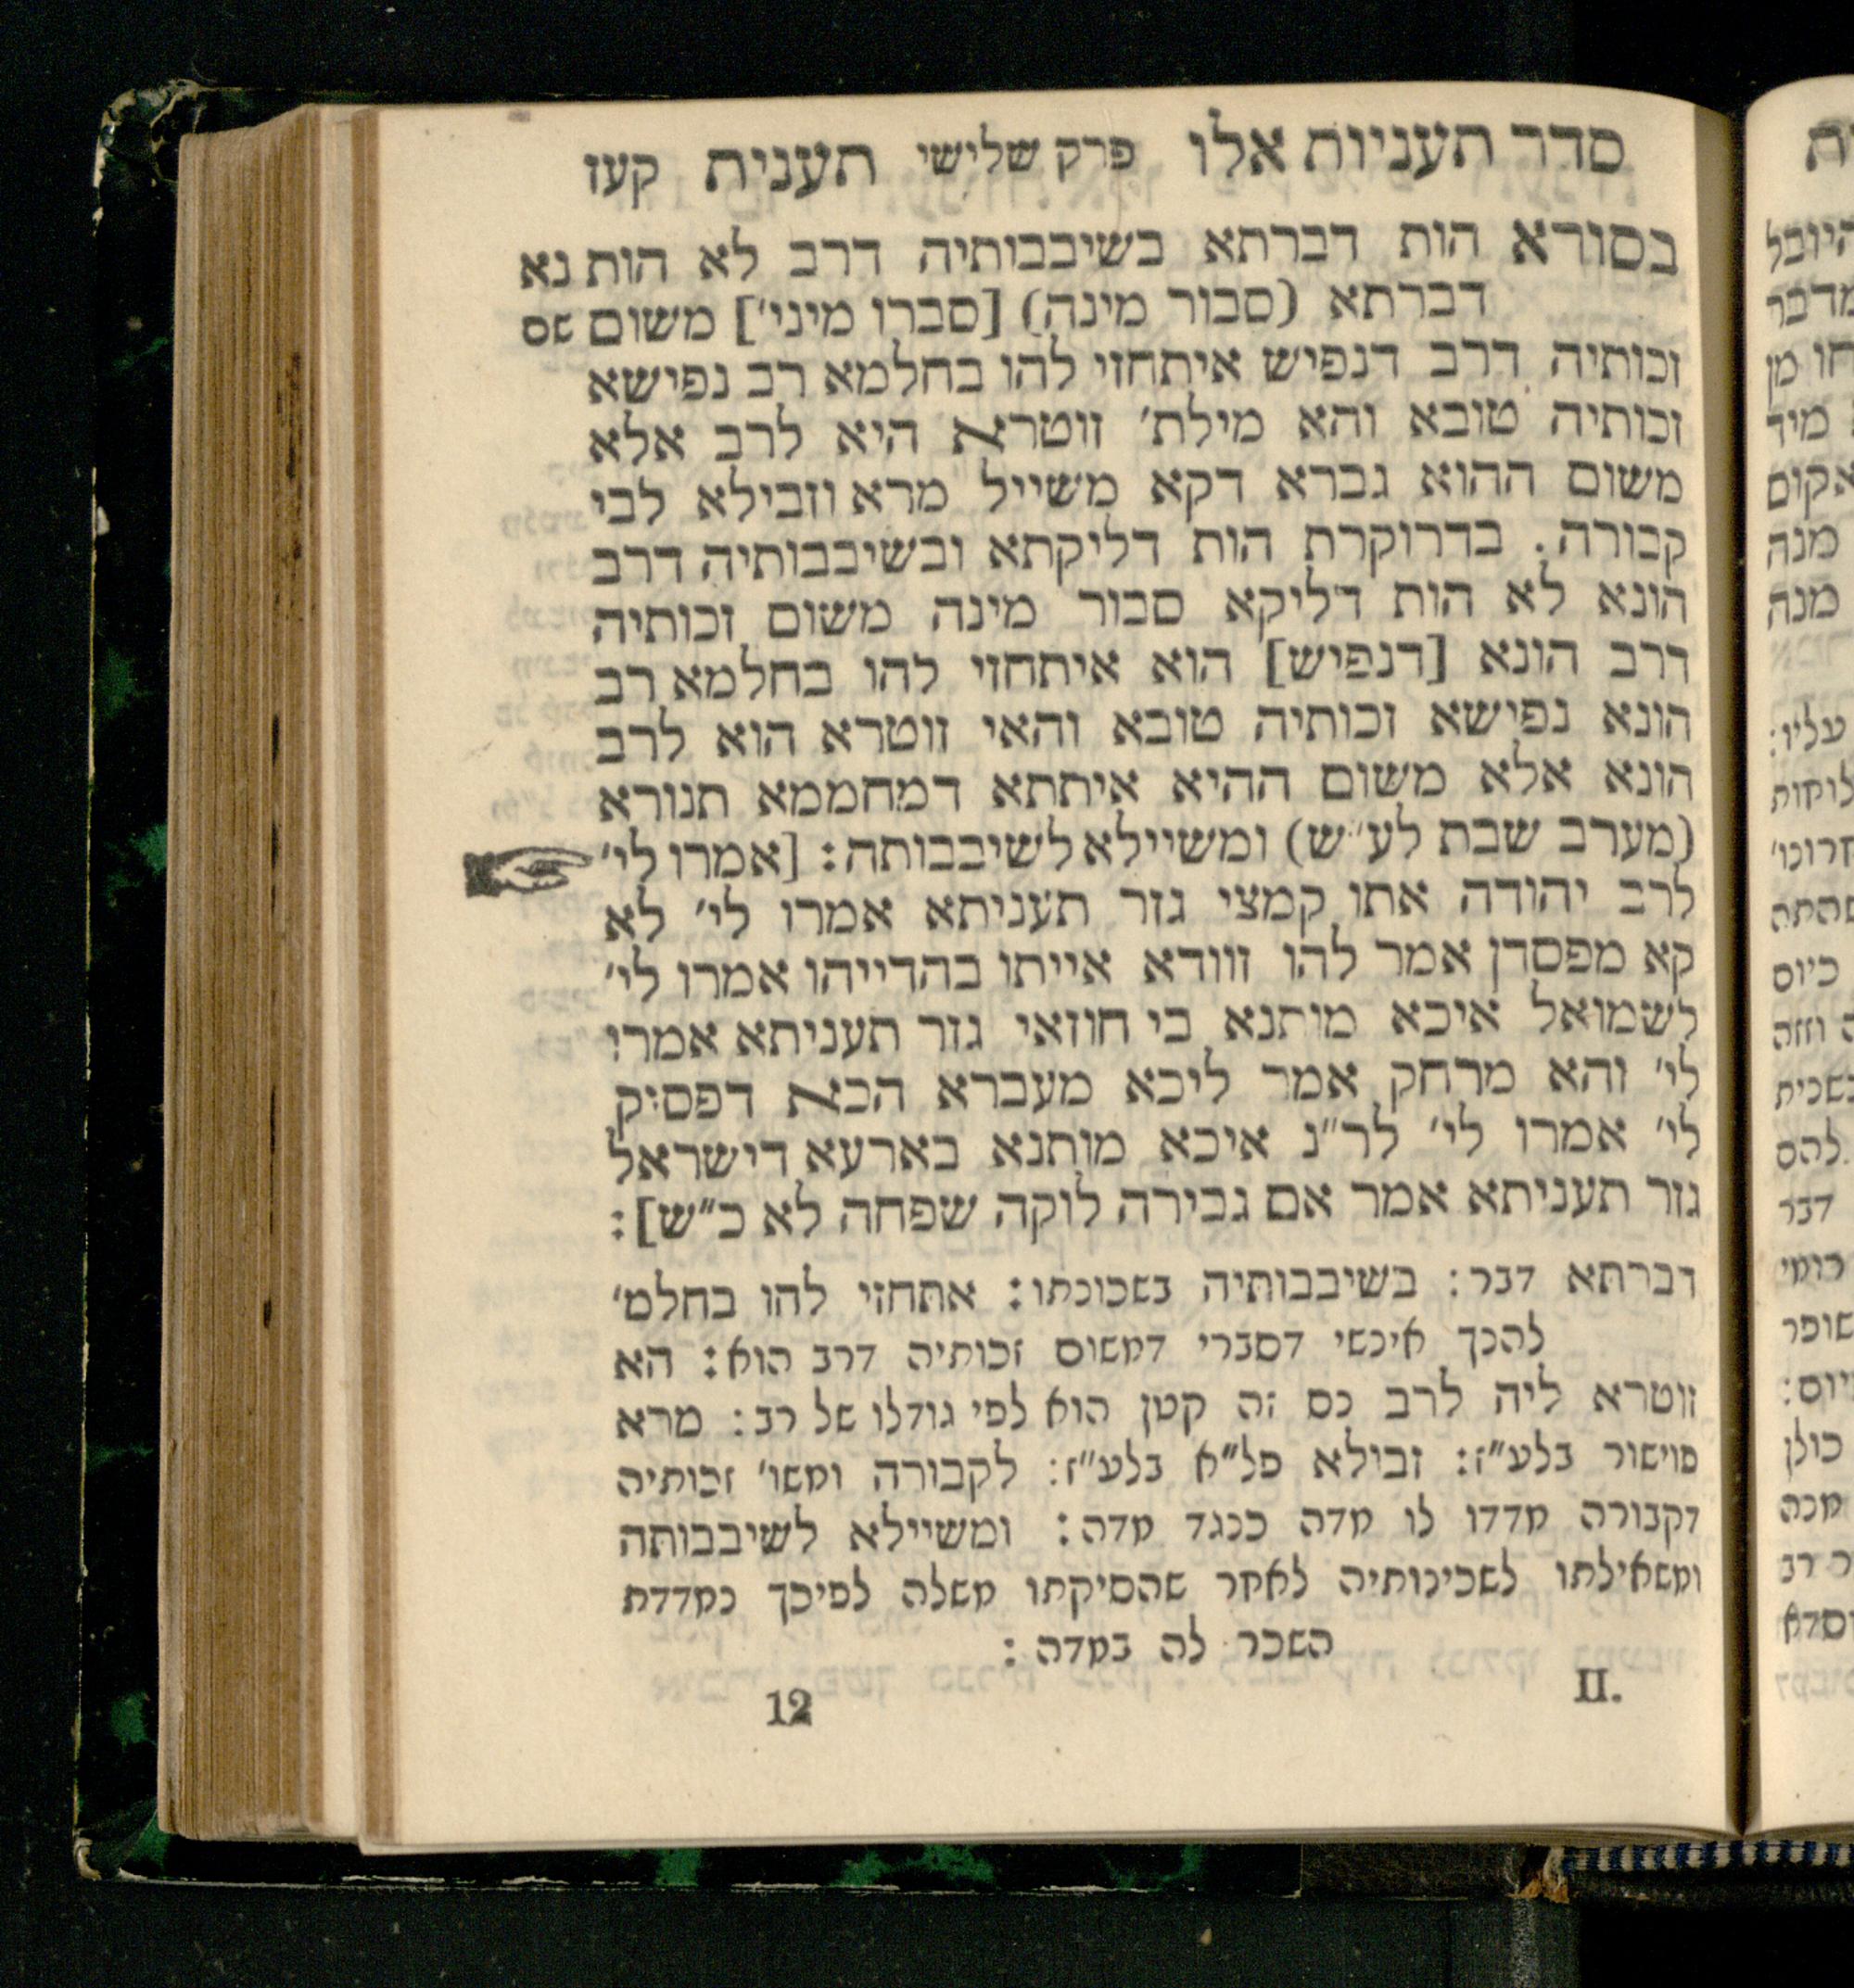 סדר תעניות אלו פרק שלישי תענית קעז
בסורא הות דברתא בשיבבותיה דרב לא הות נא
דברתא (סבור מינה) [סברו מיני'] משום שם
זכותיה דרב דנפיש איתחזי להו בחלמא רב נפישא
זכותיה טובא והא מילת' זוטרא היא לרב אלא
משום ההוא גברא דקא משייל מרא וזבילא לבי
קבורה. בדרוקרת הות דליקתא ובשיבבותיה דרב
הונא לא הות דליקא סבור מינה משום זכותיה
דרב הונא [דנפיש] הוא איתחזי להו בחלמא רב
הונא נפישא זכותיה טובא והאי זוטרא הוא לרב
הונא אלא משום ההיא איתתא דמחממא תנורא
(מערב שבת לע"ש) ומשיילא לשיבבותה: [אמרו לי'
לרב יהודה אתו קמצי גזר תעניתא אמרו לי' לא
קא מפסדן אמר להו זוודא אייתו בהדייהו אמרו לי'
לשמואל איכא מותנא בי חוזאי גזר תעניתא אמרו
לי' והא מרחק אמר ליכא מעברא הכא דפסיק
לי' אמרו לי' לר"נ איכא מותנא בארעא דישראל
גזר תעניתא אמר אם גבירה לוקה שפחה לא כ"ש]:
דברתא דבר: בשיבבותיה בשכונתו: אתחזי להו בחלמ'
להנך אינשי דסברי דמשום זכותיה דרב הוא: הא
זוטרא ליה לרב נס זה קטן הוא לפי גודלו של רב: מרא
פוישור בלע"ז: זבילא פל"א בלע"ז: לקבורה ומשו' זכותיה
דקבורה מדדו לו מדה כנגד מדה: ומשיילא לשיבבותה
ומשאילתו לשכינותיה לאחר שהסיקתו משלה לפיכך נמדדת
השכר לה במדה:
12 II.
ת
היובל
מדבר
חו מן
מיד
אקום
מנה
מנה
עליו:
כיום
להם
דבר
שופר
יום:
כולן
מכה
ר רב